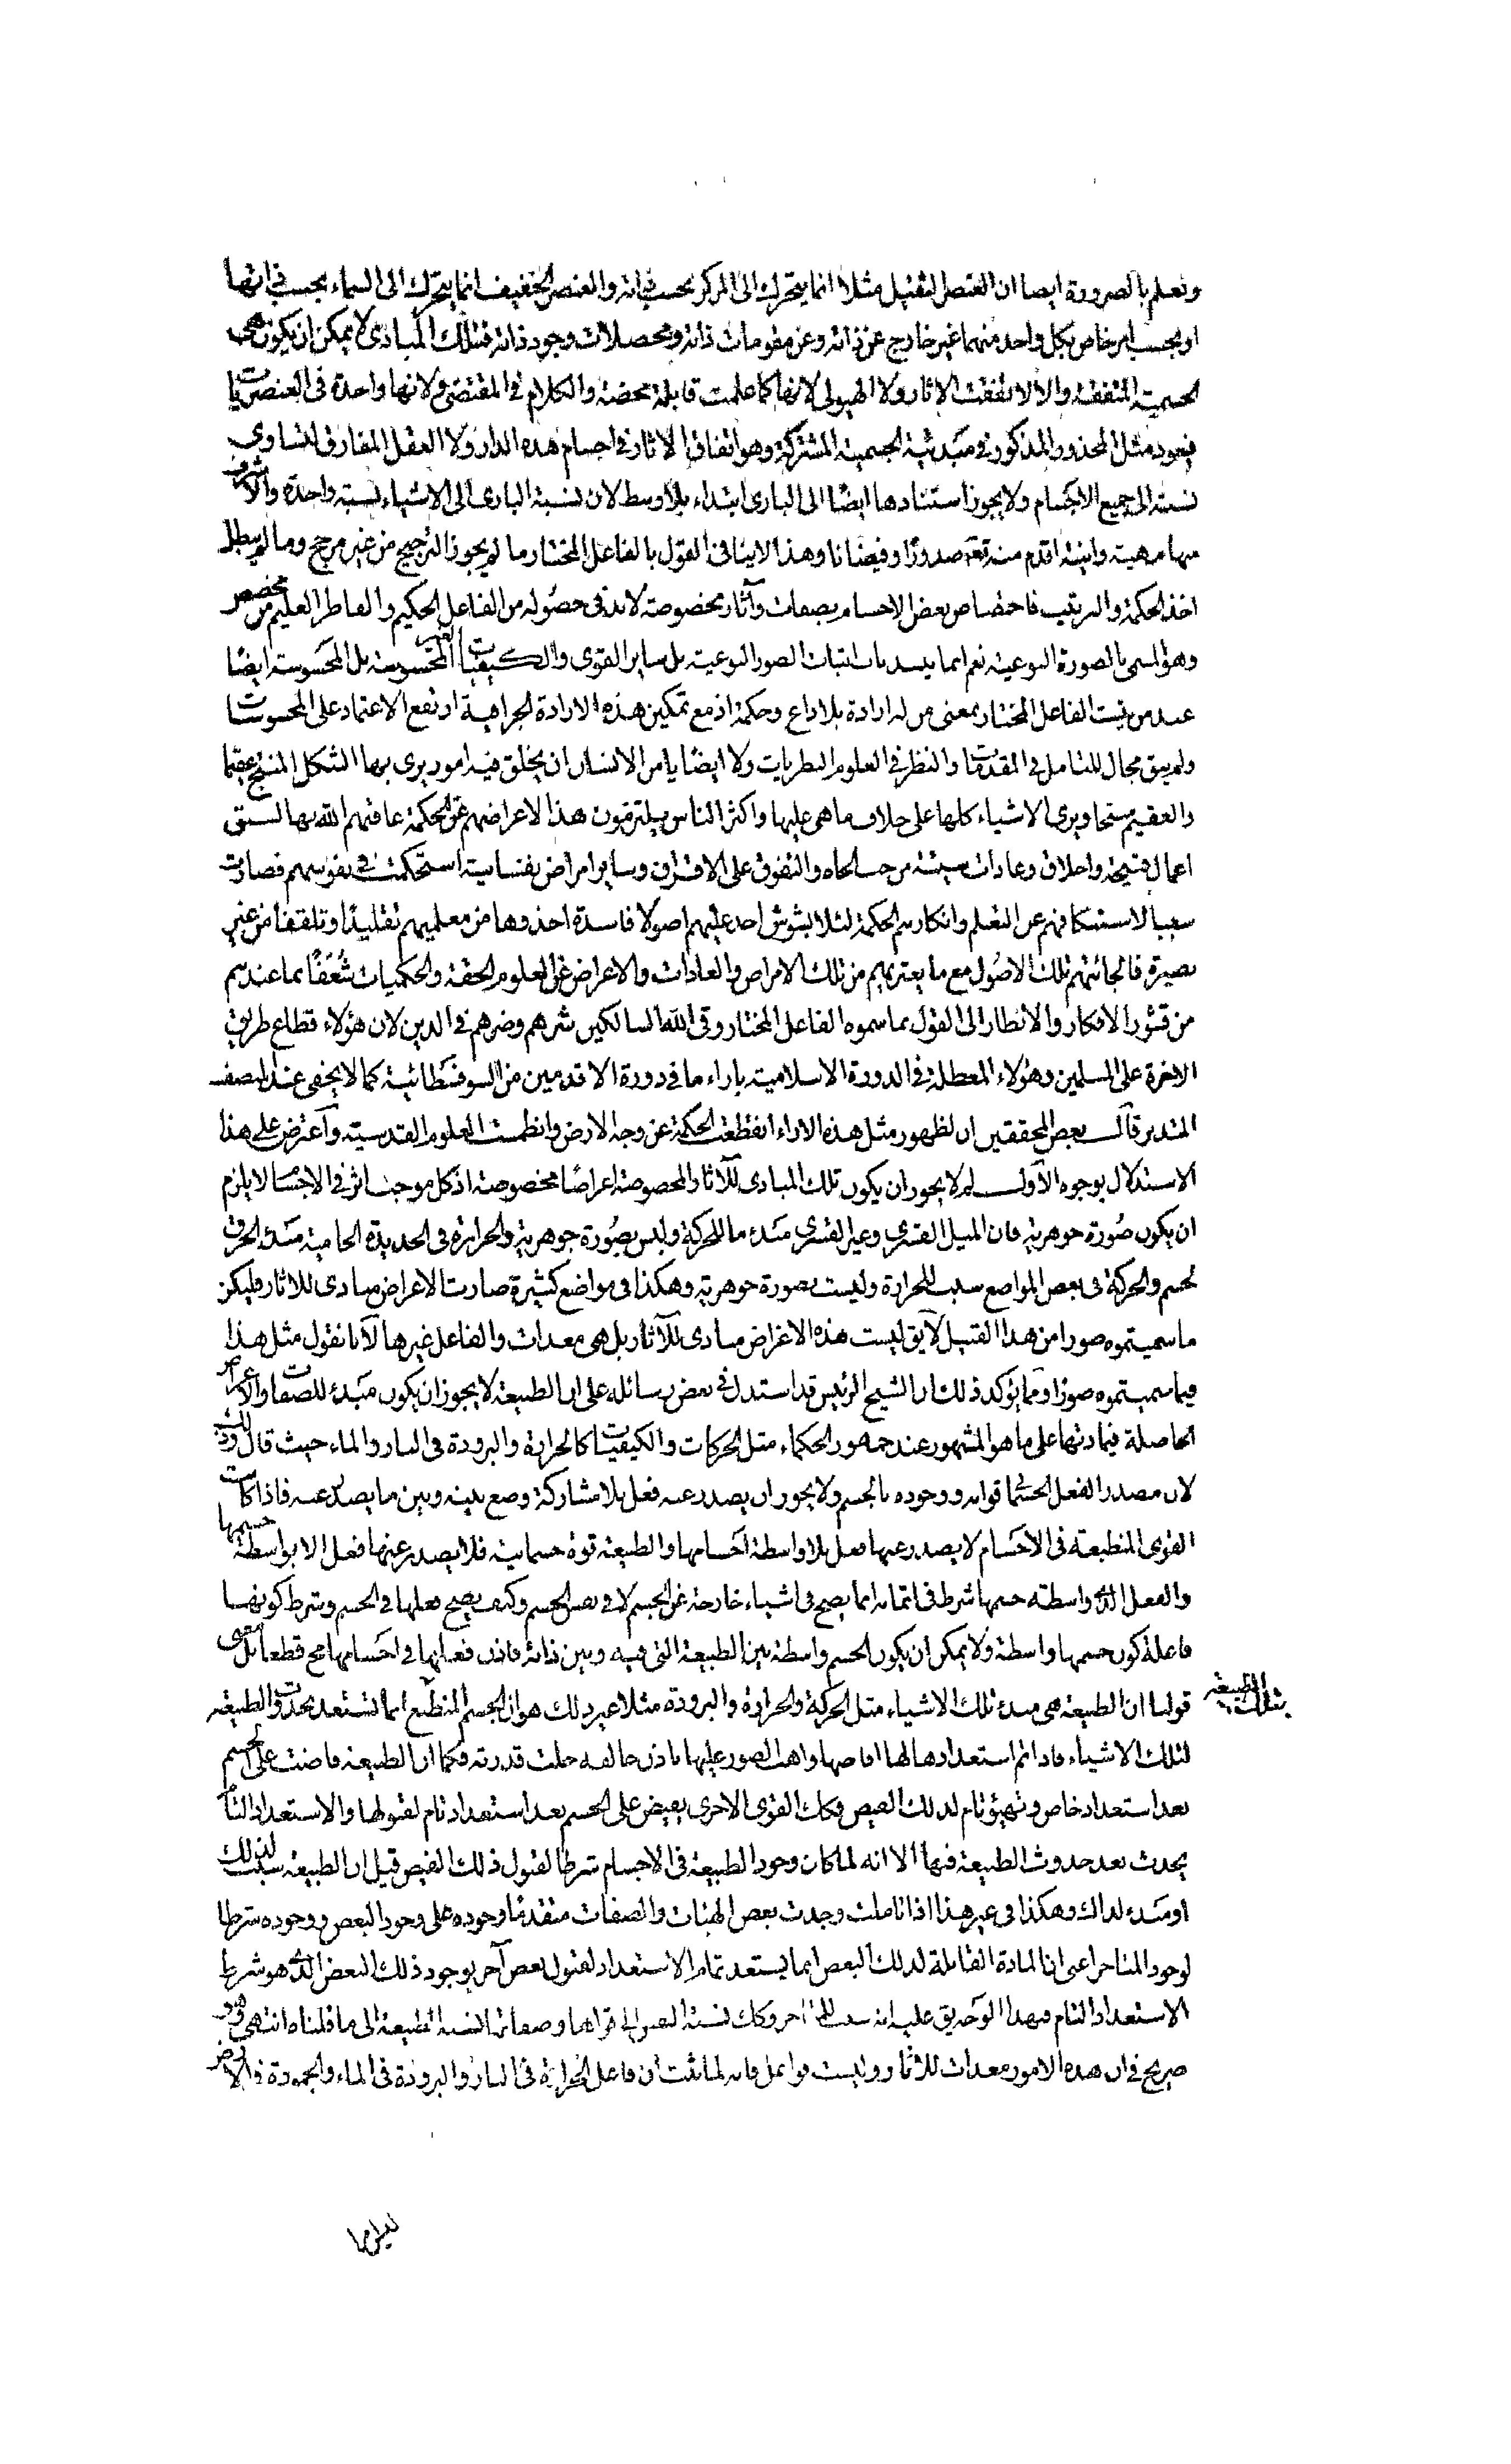 ونعلم بالضرورة ايضا ان العنصر الثقيل مثلا انما يتحرك الى المركز بحسب ذاته والعنصر الخفيف انما يتحرك الى السماء بحسب ذاتها
او بحسب امر خاص بكل واحد منهما غير خارج عن ذاته وعن مقومات ذاته ومحصلات وجود ذاته فتلك المبادى لا يمكن ان يكون هى
الجسمية المتفقة والا لاتفقت الاثار ولا الهيولى لانها كما علمت قابلة محضة والكلام فى المقتضى ولانها واحدة فى العنصريات
فيعود مثل المحذور المذكور فى مبدئية الجسمية المشتركة وهو اتفاق الاثار فى اجسام هذه الدار ولا العقل المفارق لتساوى
نسبته الى جميع الاجسام ولا يجوز استنادها ايضًا الى البارى ابتداء بلا وسط لان نسبة البارى الى الاشياء نسبة واحدة والاشرف
منها مهية وانية اقدم منه تعم صدورًا وفيضانا وهذا لا ينافى القول بالفاعل المختار ما لم يجوز الترجيح من غير مرجح وما لم يبطل
اخذ الحكمة والترتيب فاختصاص بعض الاجسام بصفات وآثار مخصوصة لابد فى حصوله من الفاعل الحكيم والفاطر العليم من مخصص
وهو المسمى بالصورة النوعية نعم انما ينسد باب اثبات الصور النوعية بل ساير القوى والكيفيات الغير المحسوسة بل المحسوسة ايضًا
عند من يثبت الفاعل المختار بمعنى من له ارادة بلا داع وحكمة اذ مع تمكين هذه الارادة الجزافية ارتفع الاعتماد على المحسوسات
ولم يبق مجال للتامل فى المقدمات والنظر فى العلوم النظريات ولا ايضًا يامن الانسان ان يخلق فيه امور يرى بها الشكل المنتج عقيما
والعقيم منتجا ويرى الاشياء كلها على خلاف ما هى عليها واكثر الناس يلتزمون هذا لاعراضهم عن الحكمة عاقبهم الله بها لسبق
اعمال قبيحة واخلاق وعادات سيئة من حب الجاه والتفوق على الاقران وساير امراض نفسانية استحكمت فى نفوسهم فصارت
سببا لاستنكافهم عن التعلم وانكارهم الحكمة لئلا يشوش احد عليهم اصولا فاسدة اخذوها من معلميهم تقليدًا وتلقفا من غير
بصيرة فالجاتهم تلك الاصول مع ما يعتريهم من تلك الامراض والعادات والاعراض عن العلوم الحقة والحكميات شُعَفًا بما عندهم
من قشور الافكار والانظار الى القول بما سموه الفاعل المختار وقى الله السالكين شرهم وضرهم فى الدين لان هؤلاء قطاع طريق
الاخرة على المسلمين وهؤلاء المعطلة فى الدورة الاسلامية بازاء ما فى دورة الاقدمين من السوفسطائية كما لا يخفى عند المصنف
المتدبر قال بعض المحققين ان لظهور مثل هذه الاراء انقطعت الحكمة عن وجه الارض وانطمست العلوم القدسية وآعترض على هذا
الاستدلال بوجوه الآول لم لا يجوز ان يكون تلك المبادى للآثار المخصوصة اعراضًا مخصوصة اذ كل موجب اثر فى الاجسام لا يلزم
ان يكون صُورة جوهرية فان الميل القسرى وغير القسرى مبدء ما للحركة وليس بصورة جوهرية والحرارة فى الحديدة الحامية مبدء الحرق
لجسم والحركة فى بعض المواضع سبب للحرارة وليست بصورة جوهرية وهكذا فى مواضع كثيرة صارت الاعراض مبادى للاثار فليكن
ما سميتموه صورا من هذا القبيل لآيق ليست هذه الاعراض مبادى للآثار بل هى معدات والفاعل غيرها لآنا نقول مثل هذا
فيما سميتموه صورًا ومما يؤكد ذلك ان الشيخ الرئيس قد استدل فى بعض رسائله على ان الطبيعة لا يجوز ان يكون مبدء للصفات والاعراض
الحاصلة فى مادتها على ما هو المشهور عند جمهور الحكماء مثل الحركات والكيفيات كالحرارة والبرودة فى النار والماء حيث قال وذلك
لان مصدر الفعل الجسمى قوامه ووجوده بالجسم ولا يجوز ان يصدر عنه فعل بلا مشاركة وضع بينه وبين ما يصدر عنه فاذا كانت
القوى المنطبعة فى الاجسام لا يصدر عنها فعل بلا واسطة اجسامها والطبيعة قوة جسمانية فلا يصدر عنها فعل الا بواسطة جسمها
والفعل الذى واسطته جسمها شرط فى اتمامه انما يصح فى اشياء خارجة عن الجسم لا فى نفس الجسم وكيف يصح فعلها فى الجسم وشرط كونها
فاعلة كون جسمها واسطة ولا يمكن ان يكون الجسم واسطة بين الطبيعة التى فيه وبين ذاته فاذن فعلها فى اجسامها مح قطعا بل معنى
قولنا ان الطبيعة هى مبدء تلك الاشياء مثل الحركة والحرارة والبرودة مثلا غير ذلك هو ان الجسم المنطبع انما تستعد بحدوث الطبيعة
بتلك الطبيعة
لتلك الاشياء فاذا تم استعدادها لها افاضها واهب الصور عليها باذن خالقه جلت قدرته فكما ان الطبيعة فاضت على الجسم
بعد استعداد خاص وتهيؤ تام لذلك الفيض فكك القوى الاخرى يفيض على الجسم بعد استعداد تام لقبولها والاستعداد التام
يحدث بعد حدوث الطبيعة فيها الا انه لما كان وجود الطبيعة فى الاجسام شرطا لقبول ذلك الفيض قيل ان الطبيعة سبب لذلك
او مبدء لذاك وهكذا فى غير هذا اذا تاملت وجدت بعض الهيئات والصفات متقدمًا وجوده على وجود البعض ووجوده شرطا
لوجود المتاخر اعنى ان المادة القابلة لذلك البعض انما يستعد تمام الاستعداد لقبول بعض آخر بوجود ذلك البعض الذى هو شرط
الاستعداد التام فبهذا الوجه يق عليه انه سبب للآخر وكك نسبة النفس الى قواها وصفاتها نسبة الطبيعة الى ما قلناه انتهى وهو
صريح فى ان هذه الامور معدات للاثار وليست فواعل فانه لما ثبت ان فاعل الحرارة فى النار والبرودة فى الماء والجمودة فى الارض